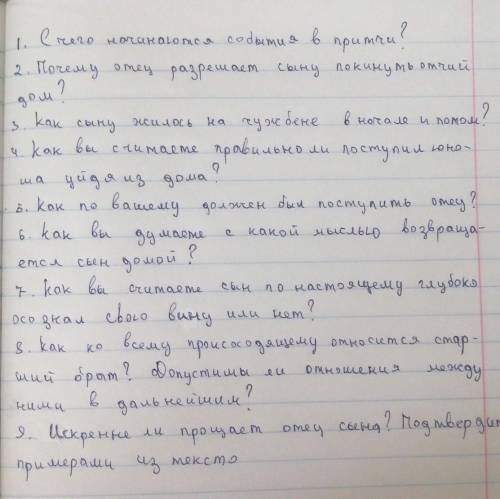 1. С чего начинаются события в притчи?
2. Почему отец разрешает сыну покинуть отчий
дом?
3. Как сыну жилось на чужбене в начале и потом?
4. Как вы считаете правильно ли поступил юно-
ша уйдя из дома?
5. Как по вашему должен был поступить отец?
6. Как вы думаете с какой мыслью возвраща-
ется сын домой?
7. Как вы считаете сын по настоящему глубоко
осознал свою вину или нет?
8. Как ко всему происходящему относится стар-
ший брат? Допустимы ли отношения между
ними в дальнейшим?
9. Искренне ли прощает отец сына? Подтвердит
примерами из текста